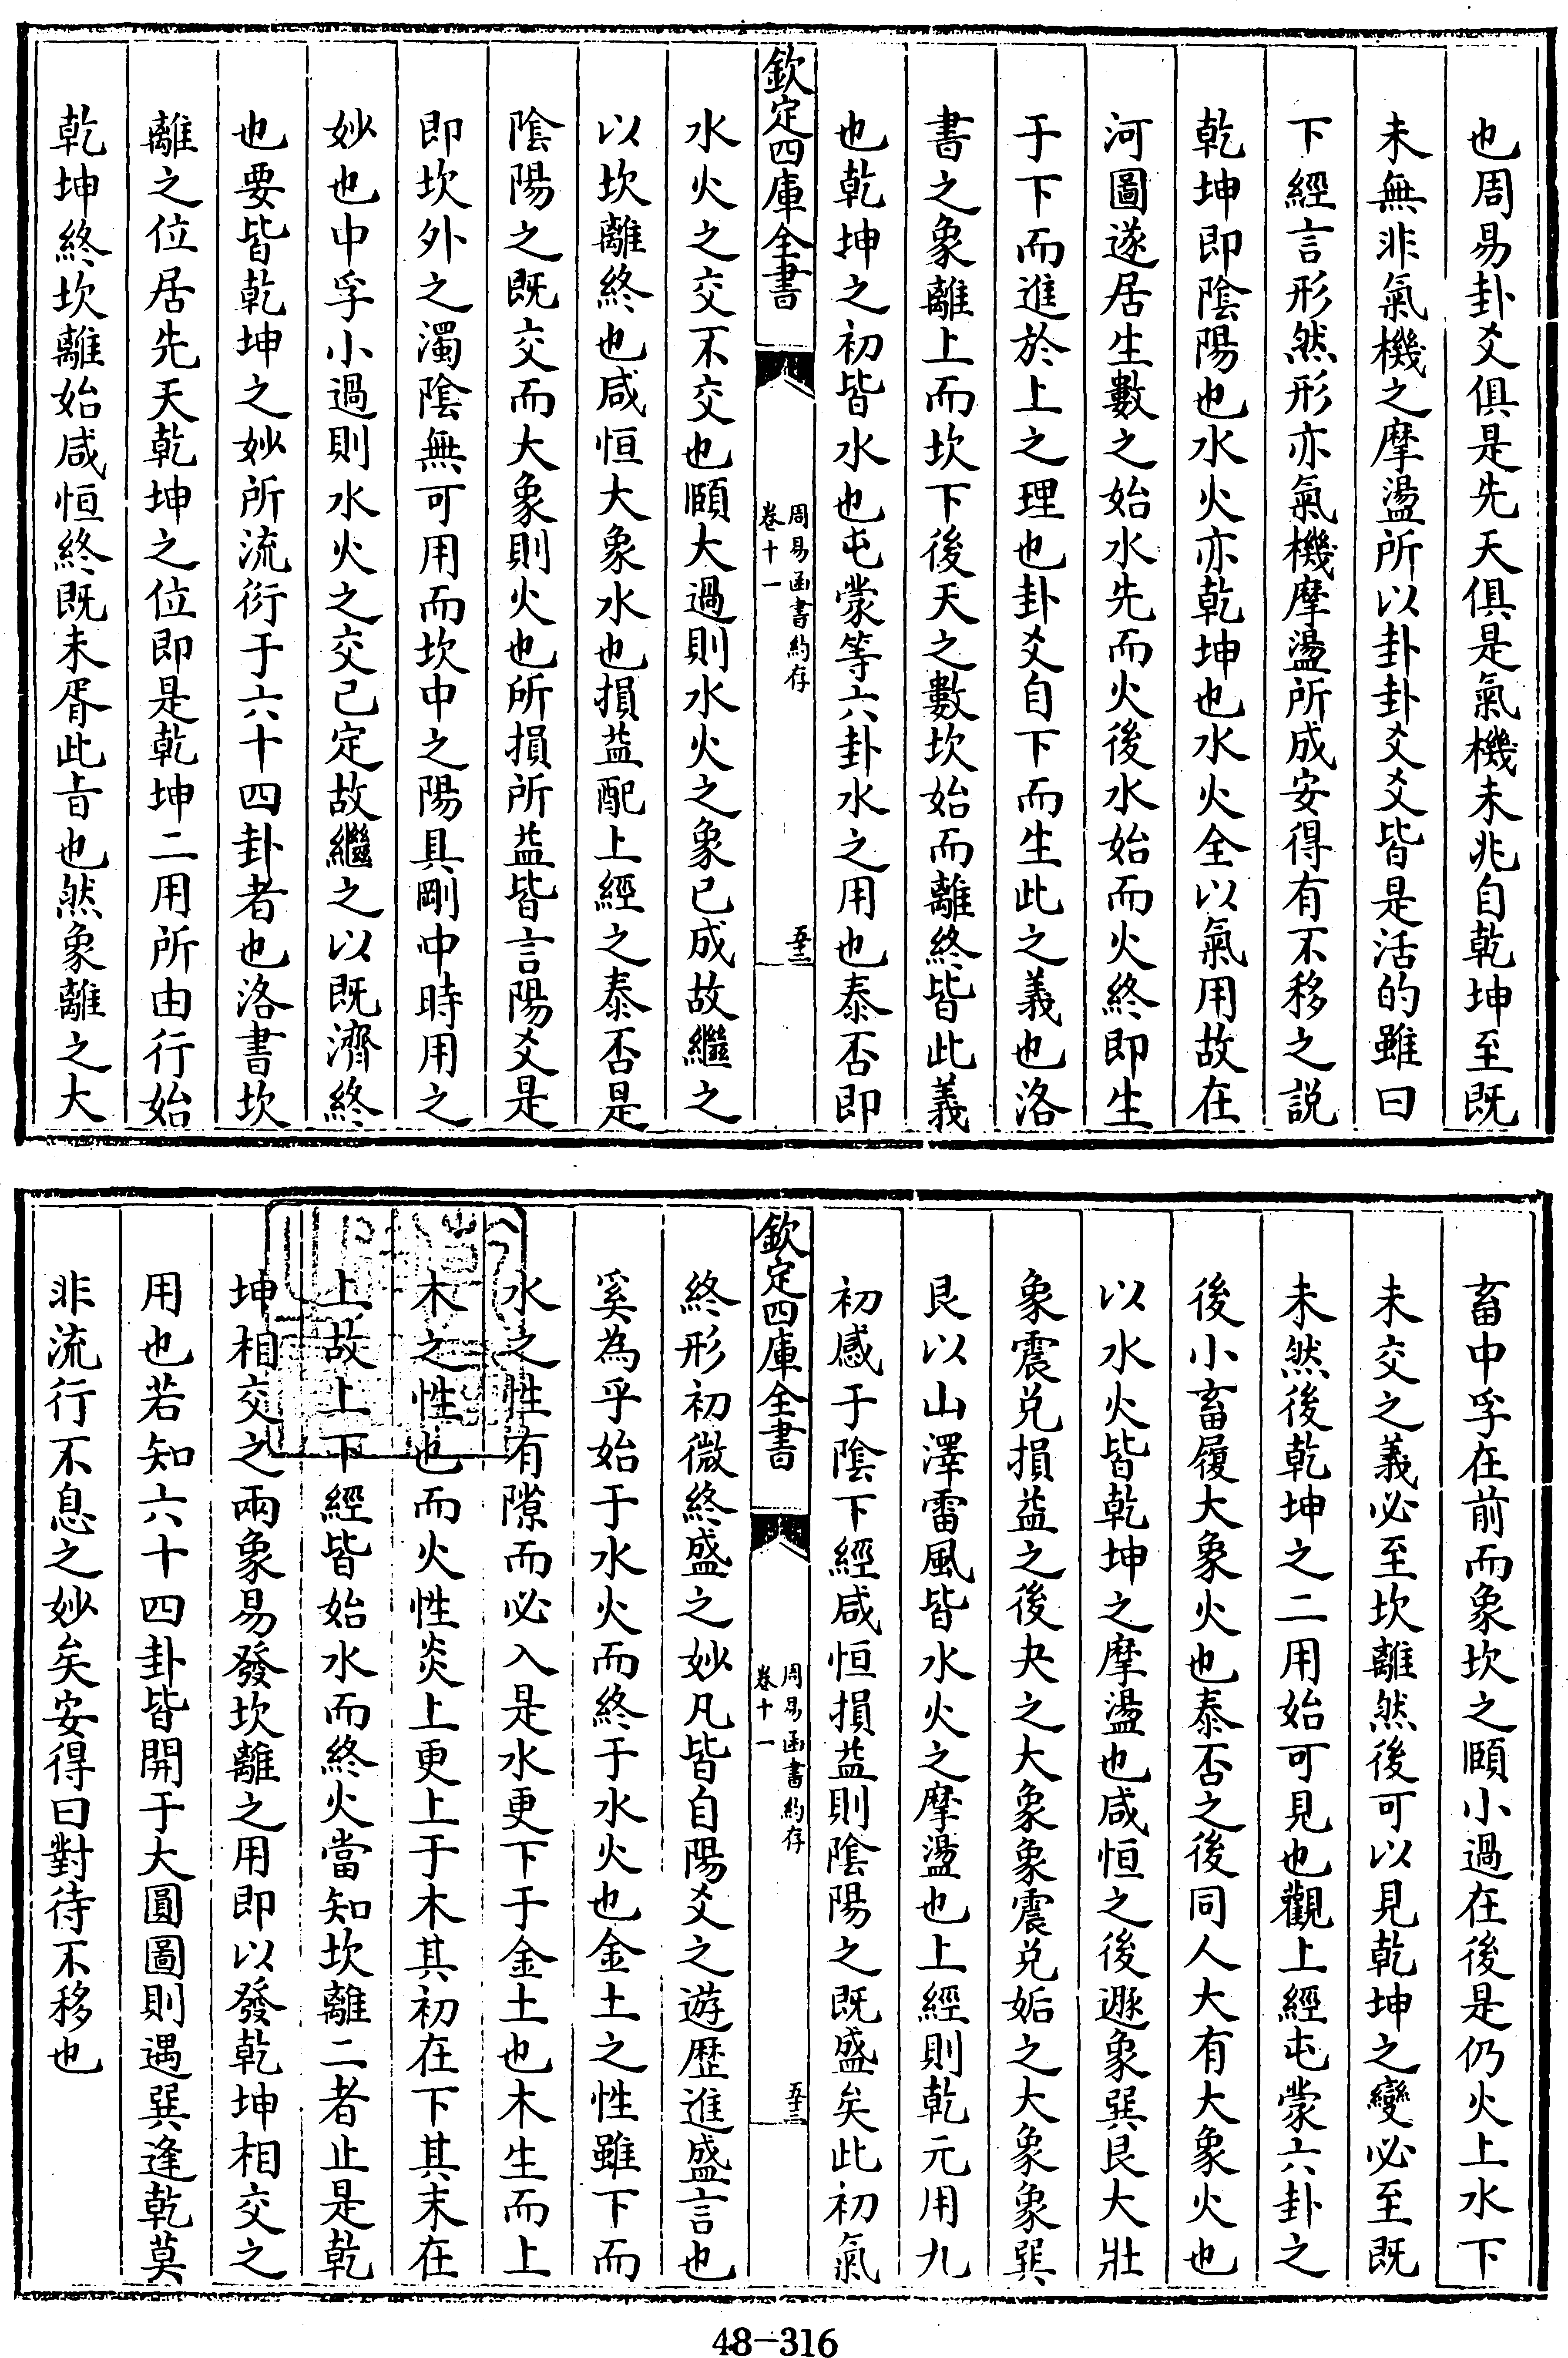 也周易卦爻俱是先天俱是氣機未兆自乾坤至既
未無非氣機之摩盪所以卦卦爻爻皆是活的雖曰
下經言形然形亦氣機摩盪所成安得有不移之說
乾坤即陰陽也水火亦乾坤也水火全以氣用故在
河圖遂居生數之始水先而火後水始而火終即生
于下而進於上之理也卦爻自下而生此之義也洛
書之象離上而坎下後天之數坎始而離終皆此義
也乾坤之初皆水也屯蒙等六卦水之用也泰否即
欽定四庫全書
周易函書約存
卷十一
五十二
水火之交不交也頤大過則水火之象已成故繼之
以坎離終也咸恒大象水也損益配上經之泰否是
陰陽之既交而大象則火也所損所益皆言陽爻是
即坎外之濁陰無可用而坎中之陽具剛中時用之
妙也中孚小過則水火之交已定故繼之以既濟終
也要皆乾坤之妙所流衍于六十四卦者也洛書坎
離之位居先天乾坤之位即是乾坤二用所由行始
乾坤終坎離始咸恒終既未胥此旨也然象離之大
畜中孚在前而象坎之頤小過在後是仍火上水下
未交之義必至坎離然後可以見乾坤之變必至既
未然後乾坤之二用始可見也觀上經屯蒙六卦之
後小畜履大象火也泰否之後同人大有大象火也
以水火皆乾坤之摩盪也咸恒之後遯象巽艮大壯
象震兌損益之後夬之大象象震兌姤之大象象巽
艮以山澤雷風皆水火之摩盪也上經則乾元用九
初感于陰下經咸恒損益則陰陽之既盛矣此初氣
欽定四庫全書
周易函書約存
卷十一
五十三
終形初微終盛之妙凡皆自陽爻之遊歷進盛言也
奚為乎始于水火而終于水火也金土之性雖下而
水之性有隙而必入是水更下于金土也木生而上
木之性也而火性炎上更上于木其初在下其末在
上故上下經皆始水而終火當知坎離二者止是乾
坤相交之兩象易發坎離之用即以發乾坤相交之
用也若知六十四卦皆開于大圓圖則遇巽逢乾莫
非流行不息之妙矣安得曰對待不移也
48-316